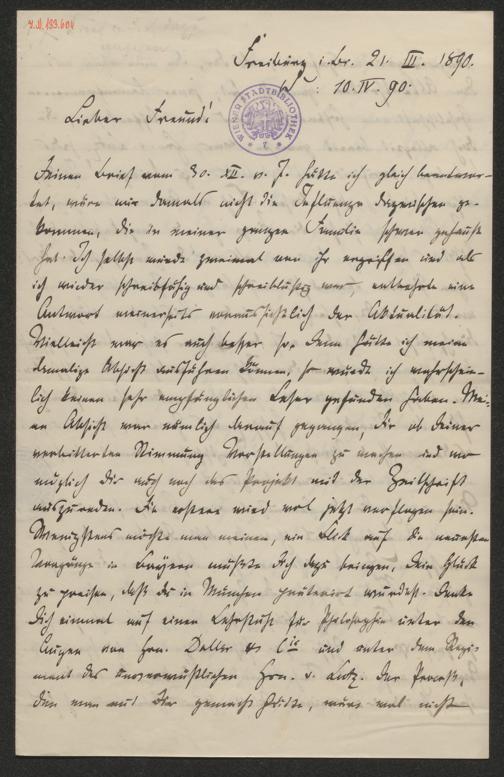 J.N. 199.604
Freiburg i. Br. 21. III. 1890.
10. IV. 90.
WIENER STADTBIBLIOTHEK
Lieber Freund!
Deinen Brief vom 30. XII. v. J. hätte ich gleich beantwor-
tet, wäre mir damals nicht die Influenza dazwischen ge-
kommen, die in meiner ganzen Familie schwer gehaust
hat. Ich selbst wurde zweimal von ihr ergriffen und als
ich wieder schreibfähig und schreiblustig war, entbehrte eine
Antwort meinerseits voraussichtlich der Aktualität.
Vielleicht war es auch besser so. Denn hätte ich meine
damalige Absicht ausführen können, so würde ich wahrschein-
lich keinen sehr empfänglichen Leser gefunden haben. Mei-
ne Absicht war nämlich darauf gegangen, Dir ob Deiner
verbitterten Stimmung Vorstellungen zu machen und wo-
möglich Dir auch noch das Projekt mit der Zeitschrift
auszureden. Die erstere wird wol jetzt verflogen sein.
Wenigstens möchte man meinen, ein Blick auf die neuesten
Vorgänge in Bayern müßte Dich dazu bringen, Dein Glück
zu preisen, daß Du in München präterirt wurdest. Denke
Dich einmal auf einen Lehrstuhl für Philosophie unter den
Augen von Hrn. Daller & Cie und unter dem Regi-
ment des Hrn. v. Lutz. Der Proceß,
den man mit Dir gemacht hätte, wäre wol nicht